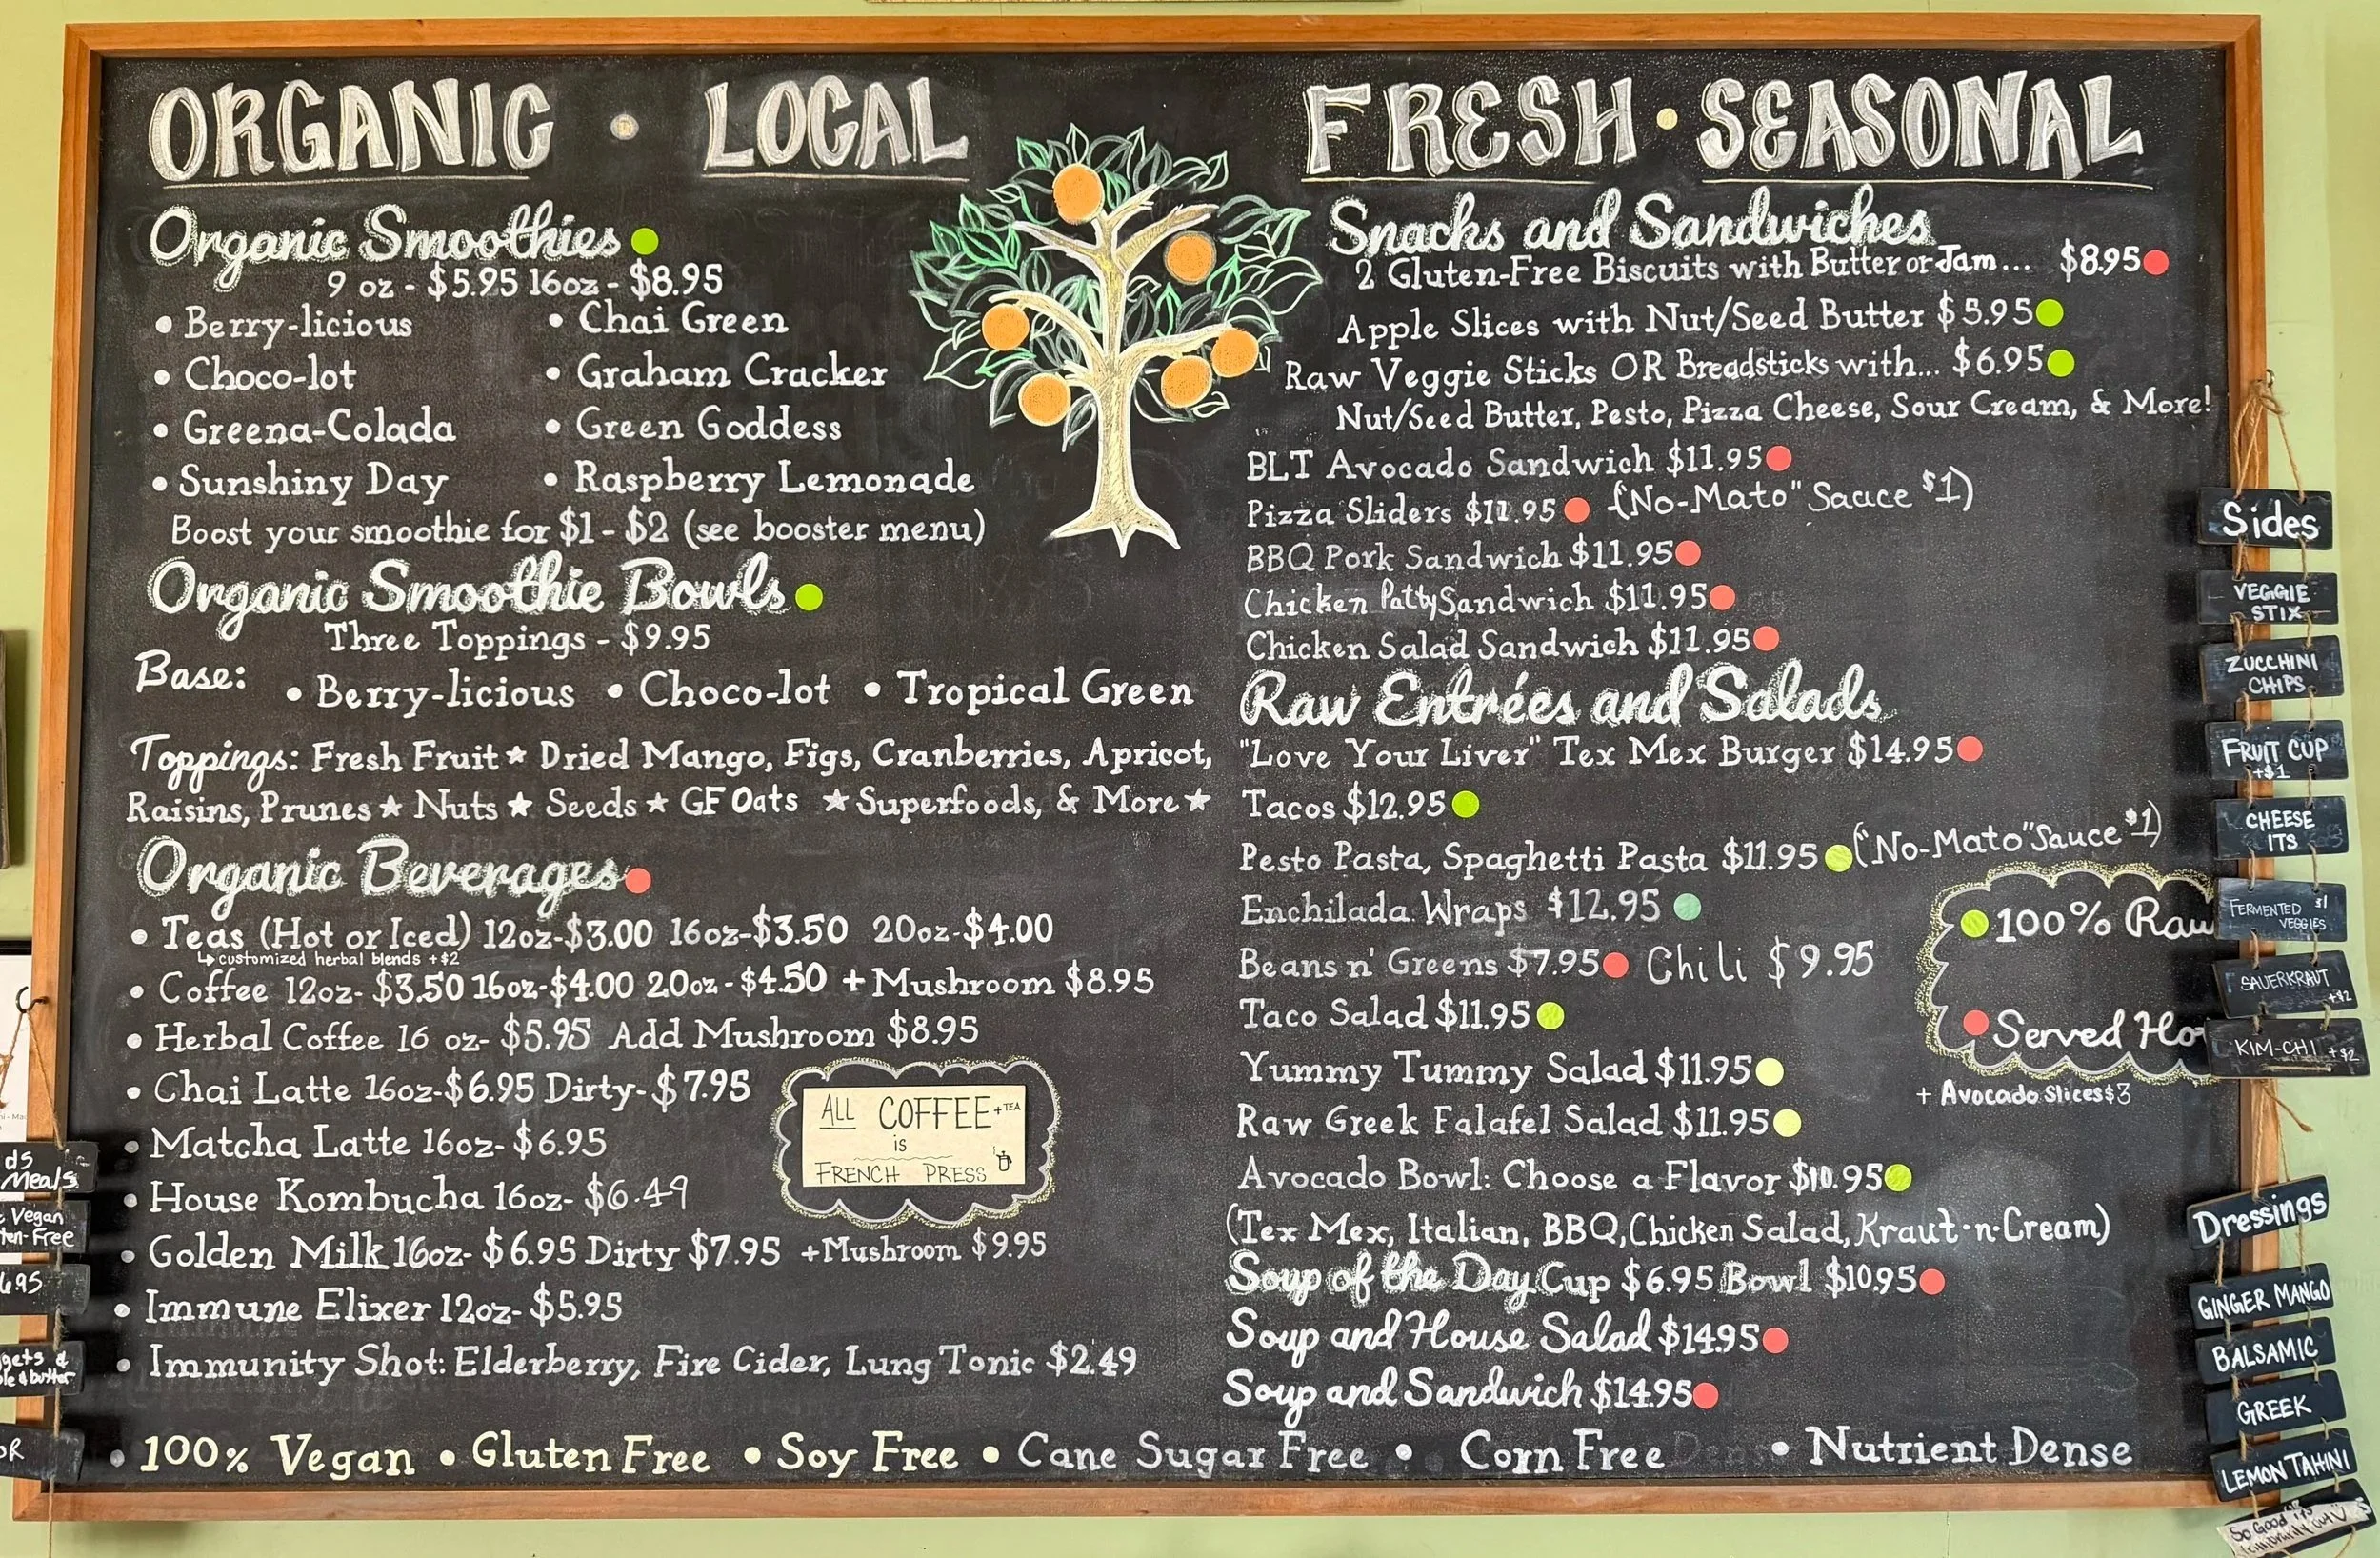 ORGANIC • LOCAL
Organic Smoothies
9 oz - $5.95 16oz - $8.95
• Berry-licious
• Chai Green
• Choco-lot
• Graham Cracker
• Greena-Colada
• Green Goddess
• Sunshiny Day
• Raspberry Lemonade
Boost your smoothie for $1 - $2 (see booster menu)
Organic Smoothie Bowls
Three Toppings - $9.95
Base: • Berry-licious • Choco-lot • Tropical Green
Toppings: Fresh Fruit ★ Dried Mango, Figs, Cranberries, Apricot,
Raisins, Prunes ★ Nuts ★ Seeds ★ GF Oats ★ Superfoods, & More ★
Organic Beverages
• Teas (Hot or Iced) 12oz-$3.00 16oz-$3.50 20oz-$4.00
↳ customized herbal blends +$2
• Coffee 12oz- $3.50 16oz-$4.00 20oz-$4.50 + Mushroom $8.95
• Herbal Coffee 16 oz- $5.95 Add Mushroom $8.95
• Chai Latte 16oz-$6.95 Dirty-$7.95
• Matcha Latte 16oz- $6.95
• House Kombucha 16oz- $6.49
• Golden Milk 16oz- $6.95 Dirty $7.95 +Mushroom $9.95
• Immune Elixer 12oz- $5.95
• Immunity Shot: Elderberry, Fire Cider, Lung Tonic $2.49
ALL COFFEE + TEA
is
FRENCH PRESS
FRESH • SEASONAL
Snacks and Sandwiches
2 Gluten-Free Biscuits with Butter or Jam... $8.95
Apple Slices with Nut/Seed Butter $5.95
Raw Veggie Sticks OR Breadsticks with... $6.95
Nut/Seed Butter, Pesto, Pizza Cheese, Sour Cream, & More!
BLT Avocado Sandwich $11.95
Pizza Sliders $11.95 ("No-Mato" Sauce $1)
BBQ Pork Sandwich $11.95
Chicken Patty Sandwich $11.95
Chicken Salad Sandwich $11.95
Raw Entrées and Salads
"Love Your Liver" Tex Mex Burger $14.95
Tacos $12.95
Pesto Pasta, Spaghetti Pasta $11.95 ("No-Mato" Sauce $1)
Enchilada Wraps $12.95
Beans n' Greens $7.95 Chili $9.95
Taco Salad $11.95
Yummy Tummy Salad $11.95
Raw Greek Falafel Salad $11.95
Avocado Bowl: Choose a Flavor $10.95
(Tex Mex, Italian, BBQ, Chicken Salad, Kraut-n-Cream)
Soup of the Day Cup $6.95 Bowl $10.95
Soup and House Salad $14.95
Soup and Sandwich $14.95
100% Raw
Served Ho
+ Avocado Slices $3
• 100% Vegan • Gluten Free • Soy Free • Cane Sugar Free • Corn Free • Nutrient Dense
Sides
VEGGIE
STIX
ZUCCHINI
CHIPS
FRUIT CUP
+$1
CHEESE
ITS
FERMENTED $1
VEGGIES
SAUERKRAUT
+$2
KIM-CHI +$2
Dressings
GINGER MANGO
BALSAMIC
GREEK
LEMON TAHINI
So Good it's
ds
Meals
Vegan
ten-Free
6.95
gets &
le & butter
OR